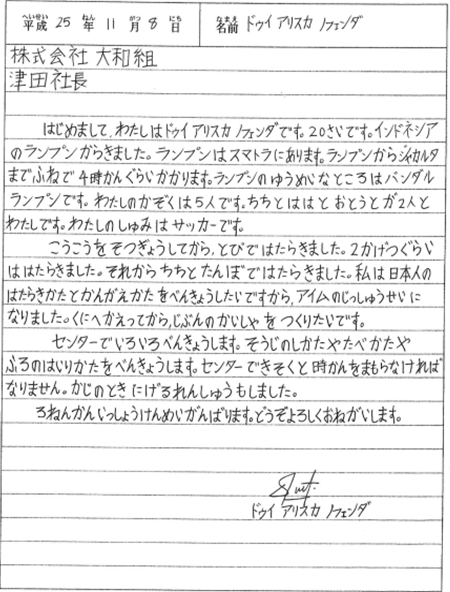 平成 25 年 11 月 8 日 名前 ドゥイ アリスカ ノフェンダ
株式会社 大和組
津田社長
はじめまして、わたしはドゥイ アリスカ ノフェンダです。20さいです。インドネシア
のランプンからきました。ランプンはスマトラにあります。ランプンからジャカルタ
までふねで4時かんぐらいかかります。ランプンのゆうめいなところはバンダル
ランプンです。わたしのかぞくは5人です。ちちとははと おとうとが2人と
わたしです。わたしのしゅみは サッカーです。
こうこうをそつぎょうしてから、とびではたらきました。2かげつぐらい
ははたらきました。それから ちちと たんぼではたらきました。私は日本人の
はたらきかたとかんがえかたをべんきょうしたいですから、アイムのじっしゅうせいに
なりました。くにへかえってから、じぶんのかいしゃを つくりたいです。
センターでいろいろべんきょうします。そうじのしかたやたべかたや
ふろのはいりかたをべんきょうします。センターできそくと時かんをまもらなければ
なりません。かじのとき にげるれんしゅうもしました。
ろねんかんいっしょうけんめいがんばります。どうぞよろしくおねがいします。
ドゥイ アリスカ ノフェンダ